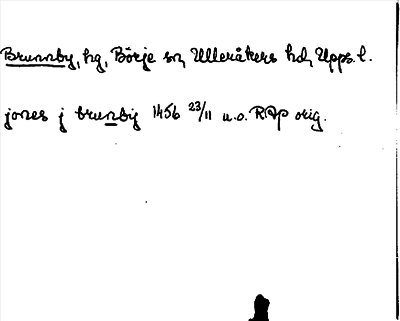 Brunnby, hg, Börje sn, Ulleråkers hd, Upps. l.
jones j brunby 1456 23/11 u.o. RAp orig.